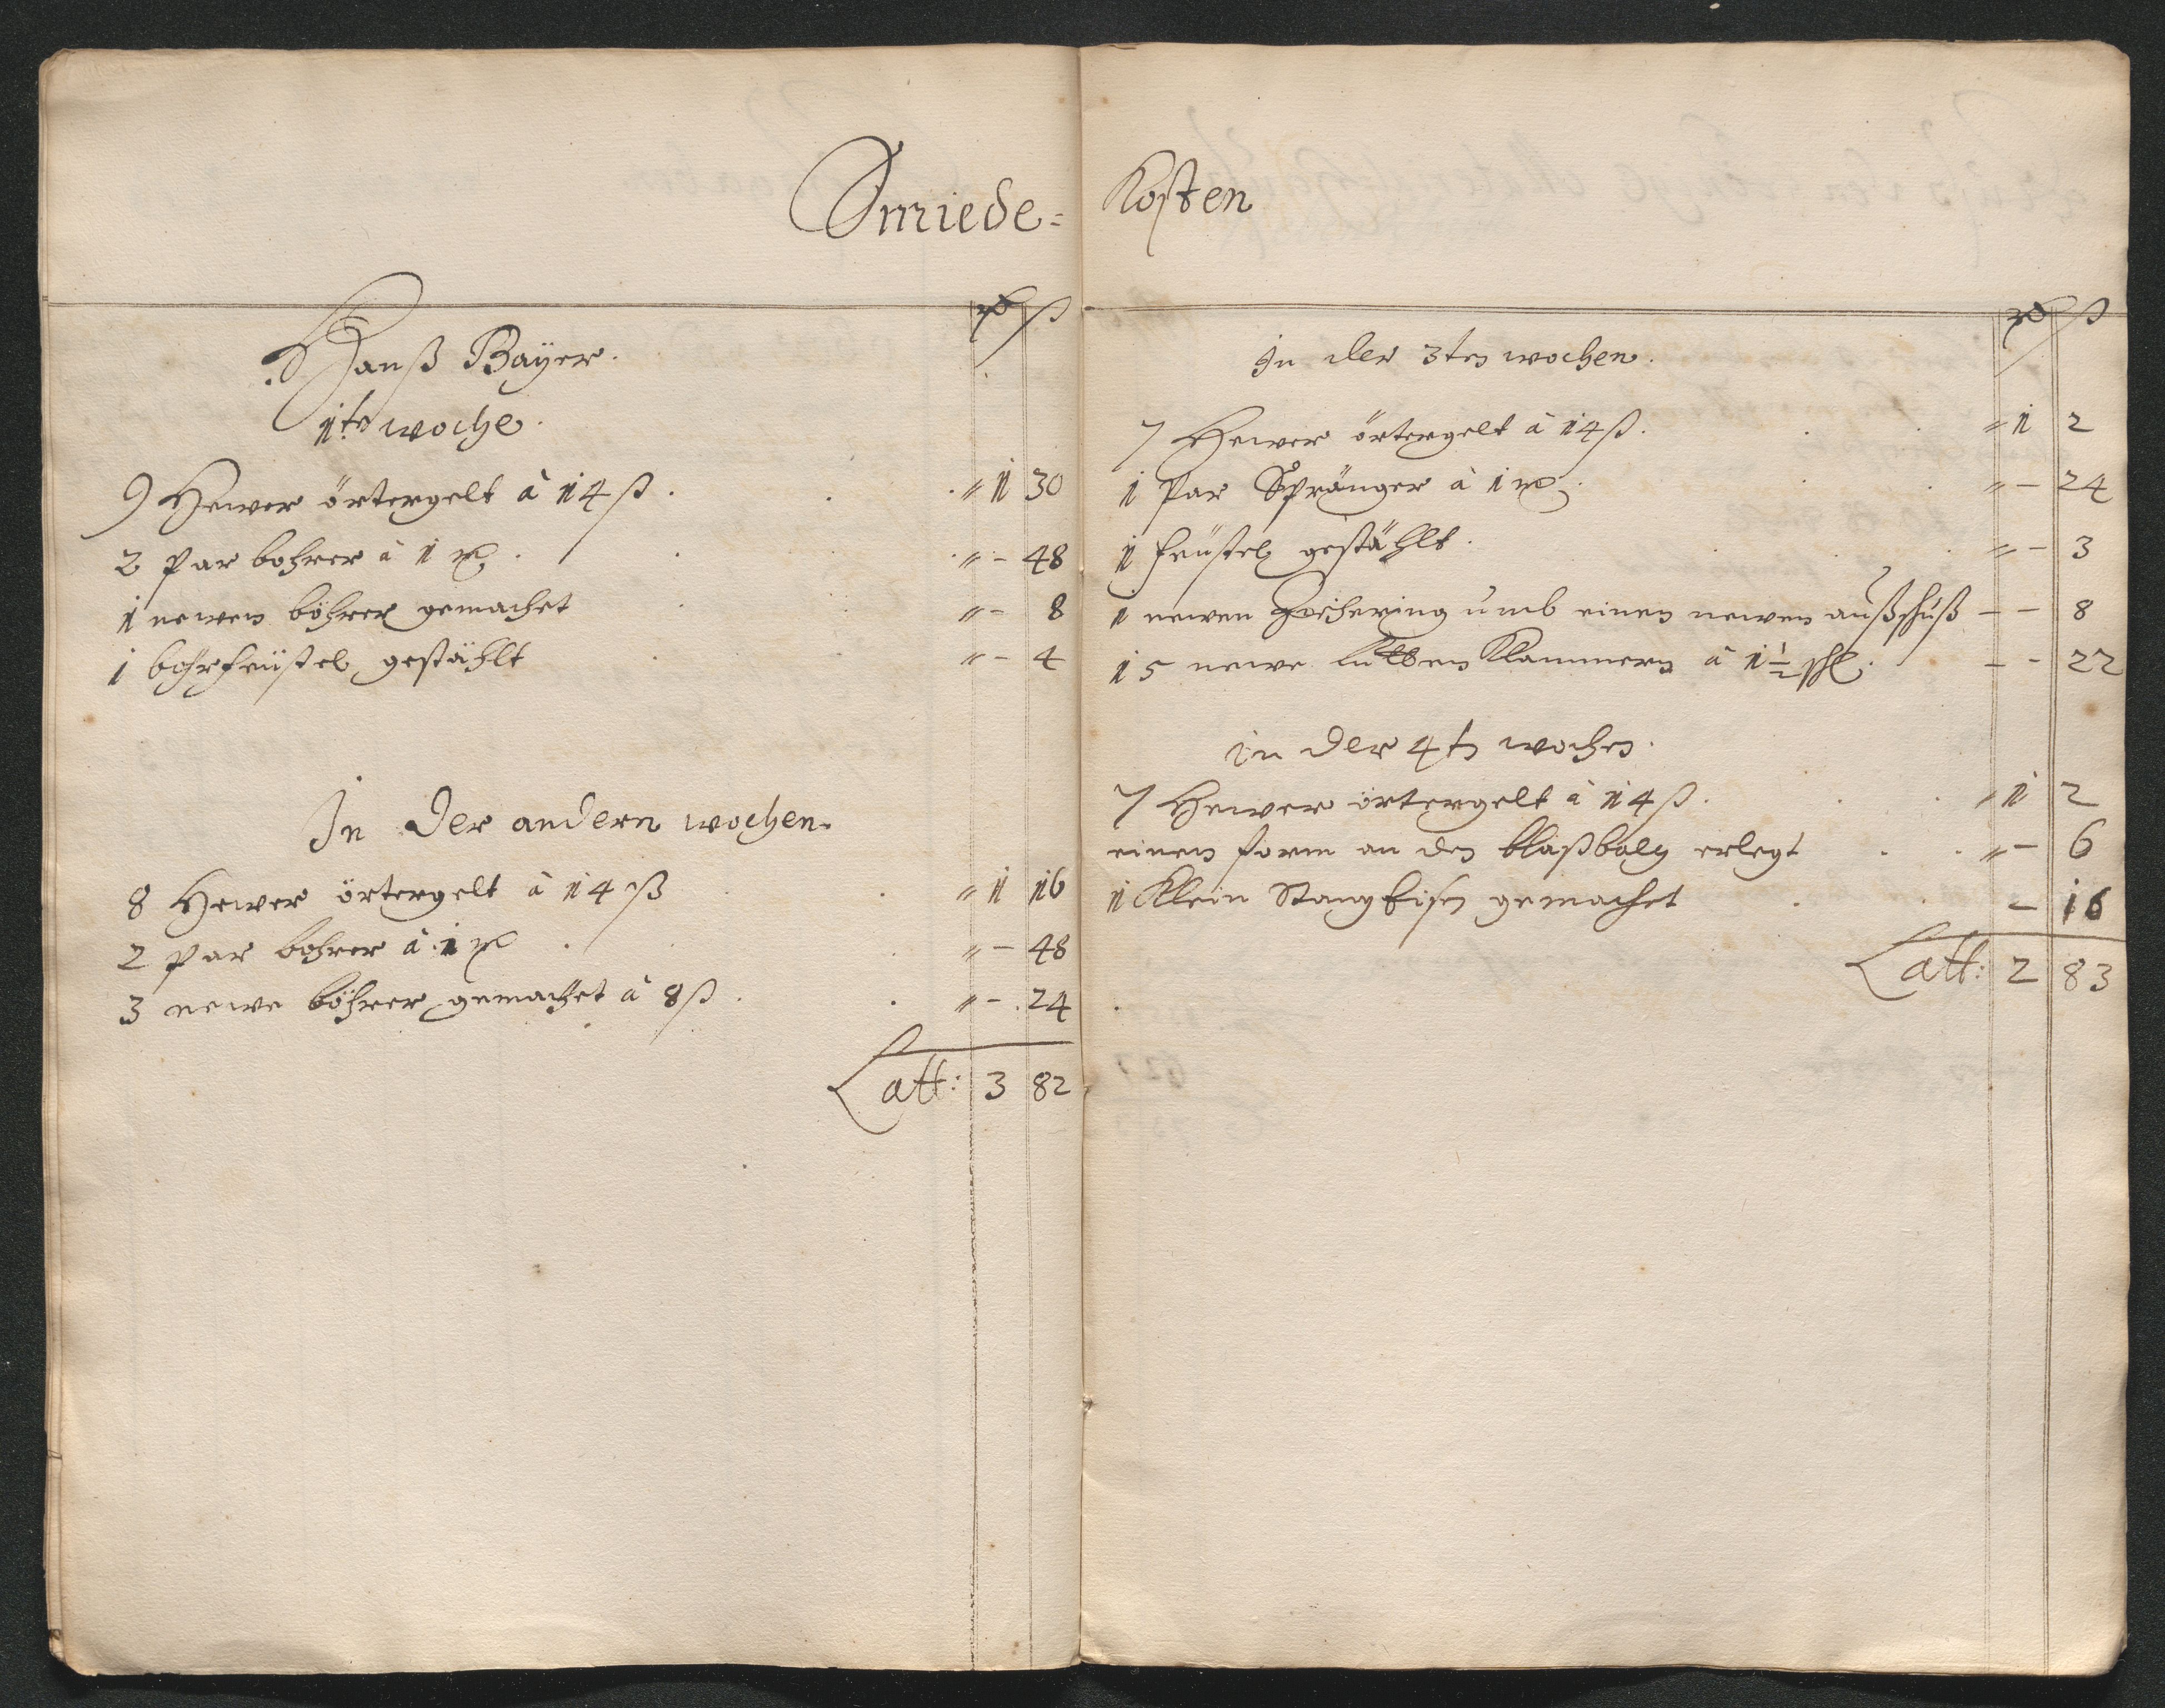 Smiede=
Rd ß
Hanß Bayer.
1te woche.
9 Hewer örtergelt à 14 ß. " 1 30
2 Par bohrer à 1 m. " - 48
1 newen böhrer gemachet " - 8
1 bohrfeüstel gestählt " - 4
In der andern wochen.
8 Hewer örtergelt à 14 ß " 1 16
2 Par bohrer à 1 m " - 48
3 newe böhrer gemachet à 8 ß. " - 24
Latt: 3 82
Kosten
Rd ß
In der 3ten wochen.
7 Hewer örtergelt à 14 ß. " 1 2
1 Par Spränger à 1 m. " - 24
1 feüstel gestählt. " - 3
1 newen umb einen newen außschuß - - 8
15 newe Lutten Klammern à 1 1/2 ßl. - - 22
in der 4ten wochen.
7 Hewer örtergelt à 14 ß. " 1 2
einen form an den blaßbalg erlegt " - 6
1 Klein Stang Eisen gemachet - 16
Latt: 2 83